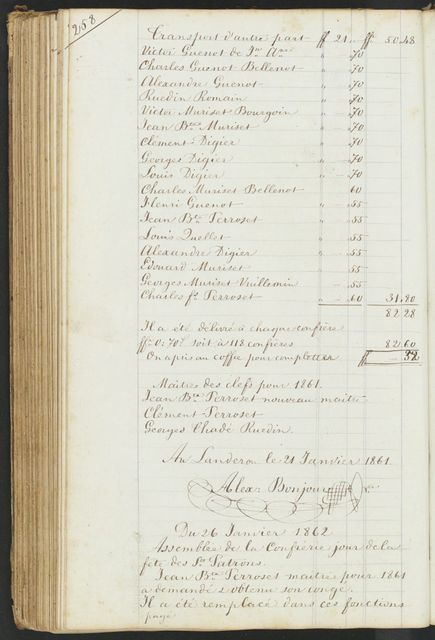 258
Transport d'autre part ff 21 .. ff 50.48
Victor Guenot de Jn Amé " .70
Charles Guenot Bellenot " .70
Alexandre Guenot " .70
Ruedin Romain " .70
Victor Muriset Bourgoin " .70
Jean Bte Muriset " .70
Clément Digier " .70
Georges Digier " .70
Louis Digier " .70
Charles Muriset Bellenot " 60
Henri Guenot " .55
Jean Bte Perroset " .55
Louis Quellet " .55
Alexandre Digier " .55
Edouard Muriset " .55
Georges Muriset Vuillemin .55
Charles fs Perroset " .60 31.80
82 28
Il a été délivré à chaque confrère
ffs 0:70c soit à 118 confrères 82 60
On a pris au coffre pour compléter ff — 32
Maîtres des clefs pour 1861
Jean Bte Perroset nouveau maître
Clément Perroset
Georges Chadé Ruedin.
Au Landeron le 21 Janvier 1861
Alex: Bonjour
Du 26 Janvier 1862
Assemblée de la Confrérie jour de la
fête des Sts Patrons.
Jean Bte Perroset maître pour 1861
a demandé & obtenu son congé.
Il a été remplacé dans ces fonctions